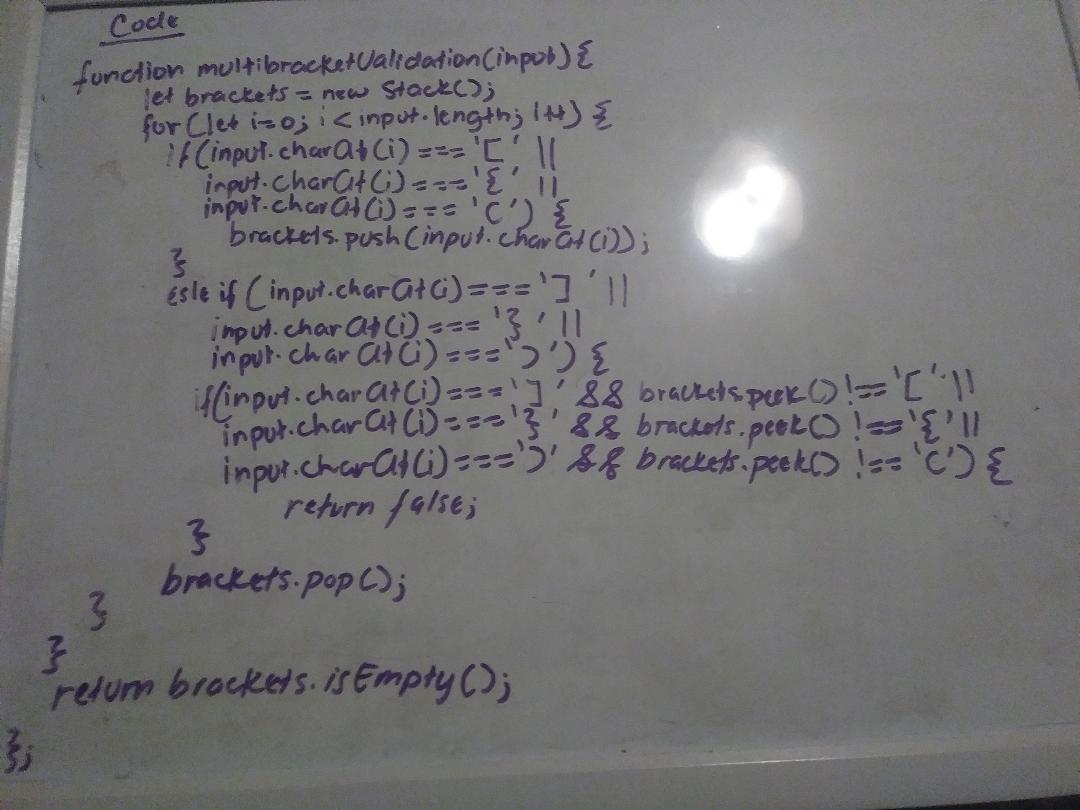 Code
function multibracketValidation(input){
let brackets = new Stack();
for(let i=0; i<input.length; i++) {
if(input.charAt(i) === '[' ||
input.charAt(i) === '{' ||
input.charAt(i) === '(') {
brackets.push(input.charAt(i));
}
esle if (input.charAt(i) === ']' ||
input.charAt(i) === '}' ||
input.charAt(i) === ')') {
if(input.charAt(i) === ']' && brackets.peek() !== '[' ||
input.charAt(i) === '}' && brackets.peek() !== '{' ||
input.charAt(i) === ')' && brackets.peek() !== '(') {
return false;
}
brackets.pop();
}
}
return brackets.isEmpty();
};